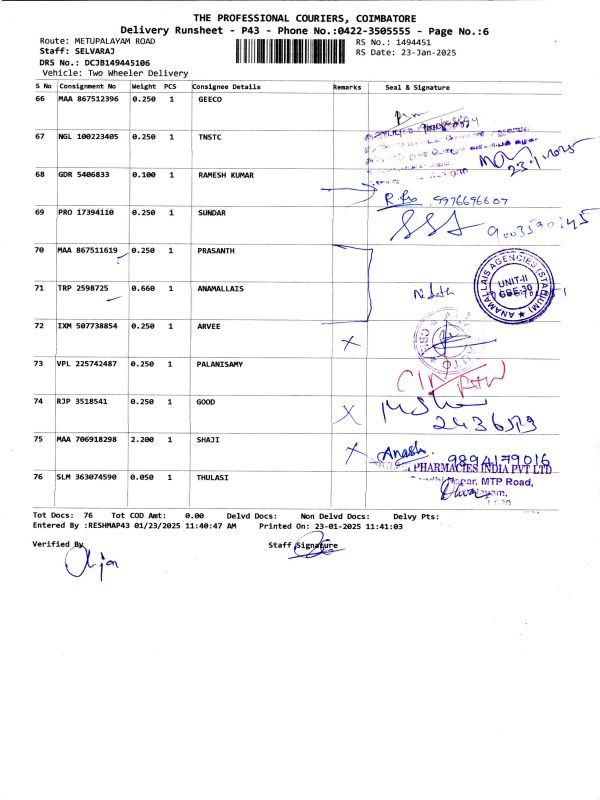 THE PROFESSIONAL COURIERS, COIMBATORE
Delivery Runsheet - P43 - Phone No.:0422-3505555 - Page No.:6
Route: METUPALAYAM ROAD RS No.: 1494451
Staff: SELVARAJ RS Date: 23-Jan-2025
DRS No.: DCJB149445106
Vehicle: Two Wheeler Delivery
S No Consignment No Weight PCS Consignee Details Remarks Seal & Signature
66 MAA 867512396 0.250 1 GEECO
67 NGL 100223405 0.250 1 TNSTC
23.1.2025
68 GDR 5406833 0.100 1 RAMESH KUMAR
9976696607
69 PRO 17394110 0.250 1 SUNDAR
9003590145
70 MAA 867511619 0.250 1 PRASANTH
ANAMALLAIS AGENCIES (STADIUM)
UNIT-II
CBE-30
71 TRP 2598725 0.660 1 ANAMALLAIS
72 IXM 507738854 0.250 1 ARVEE
X
73 VPL 225742487 0.250 1 PALANISAMY
74 RJP 3518541 0.250 1 GOOD
X
75 MAA 706918298 2.200 1 SHAJI
X
9894179016
PHARMACIES INDIA PVT LTD
76 SLM 363074590 0.050 1 THULASI
MTP Road,
Tot Docs: 76 Tot COD Amt: 0.00 Delvd Docs: Non Delvd Docs: Delvy Pts:
Entered By :RESHMAP43 01/23/2025 11:40:47 AM Printed On: 23-01-2025 11:41:03
Verified By Staff Signature